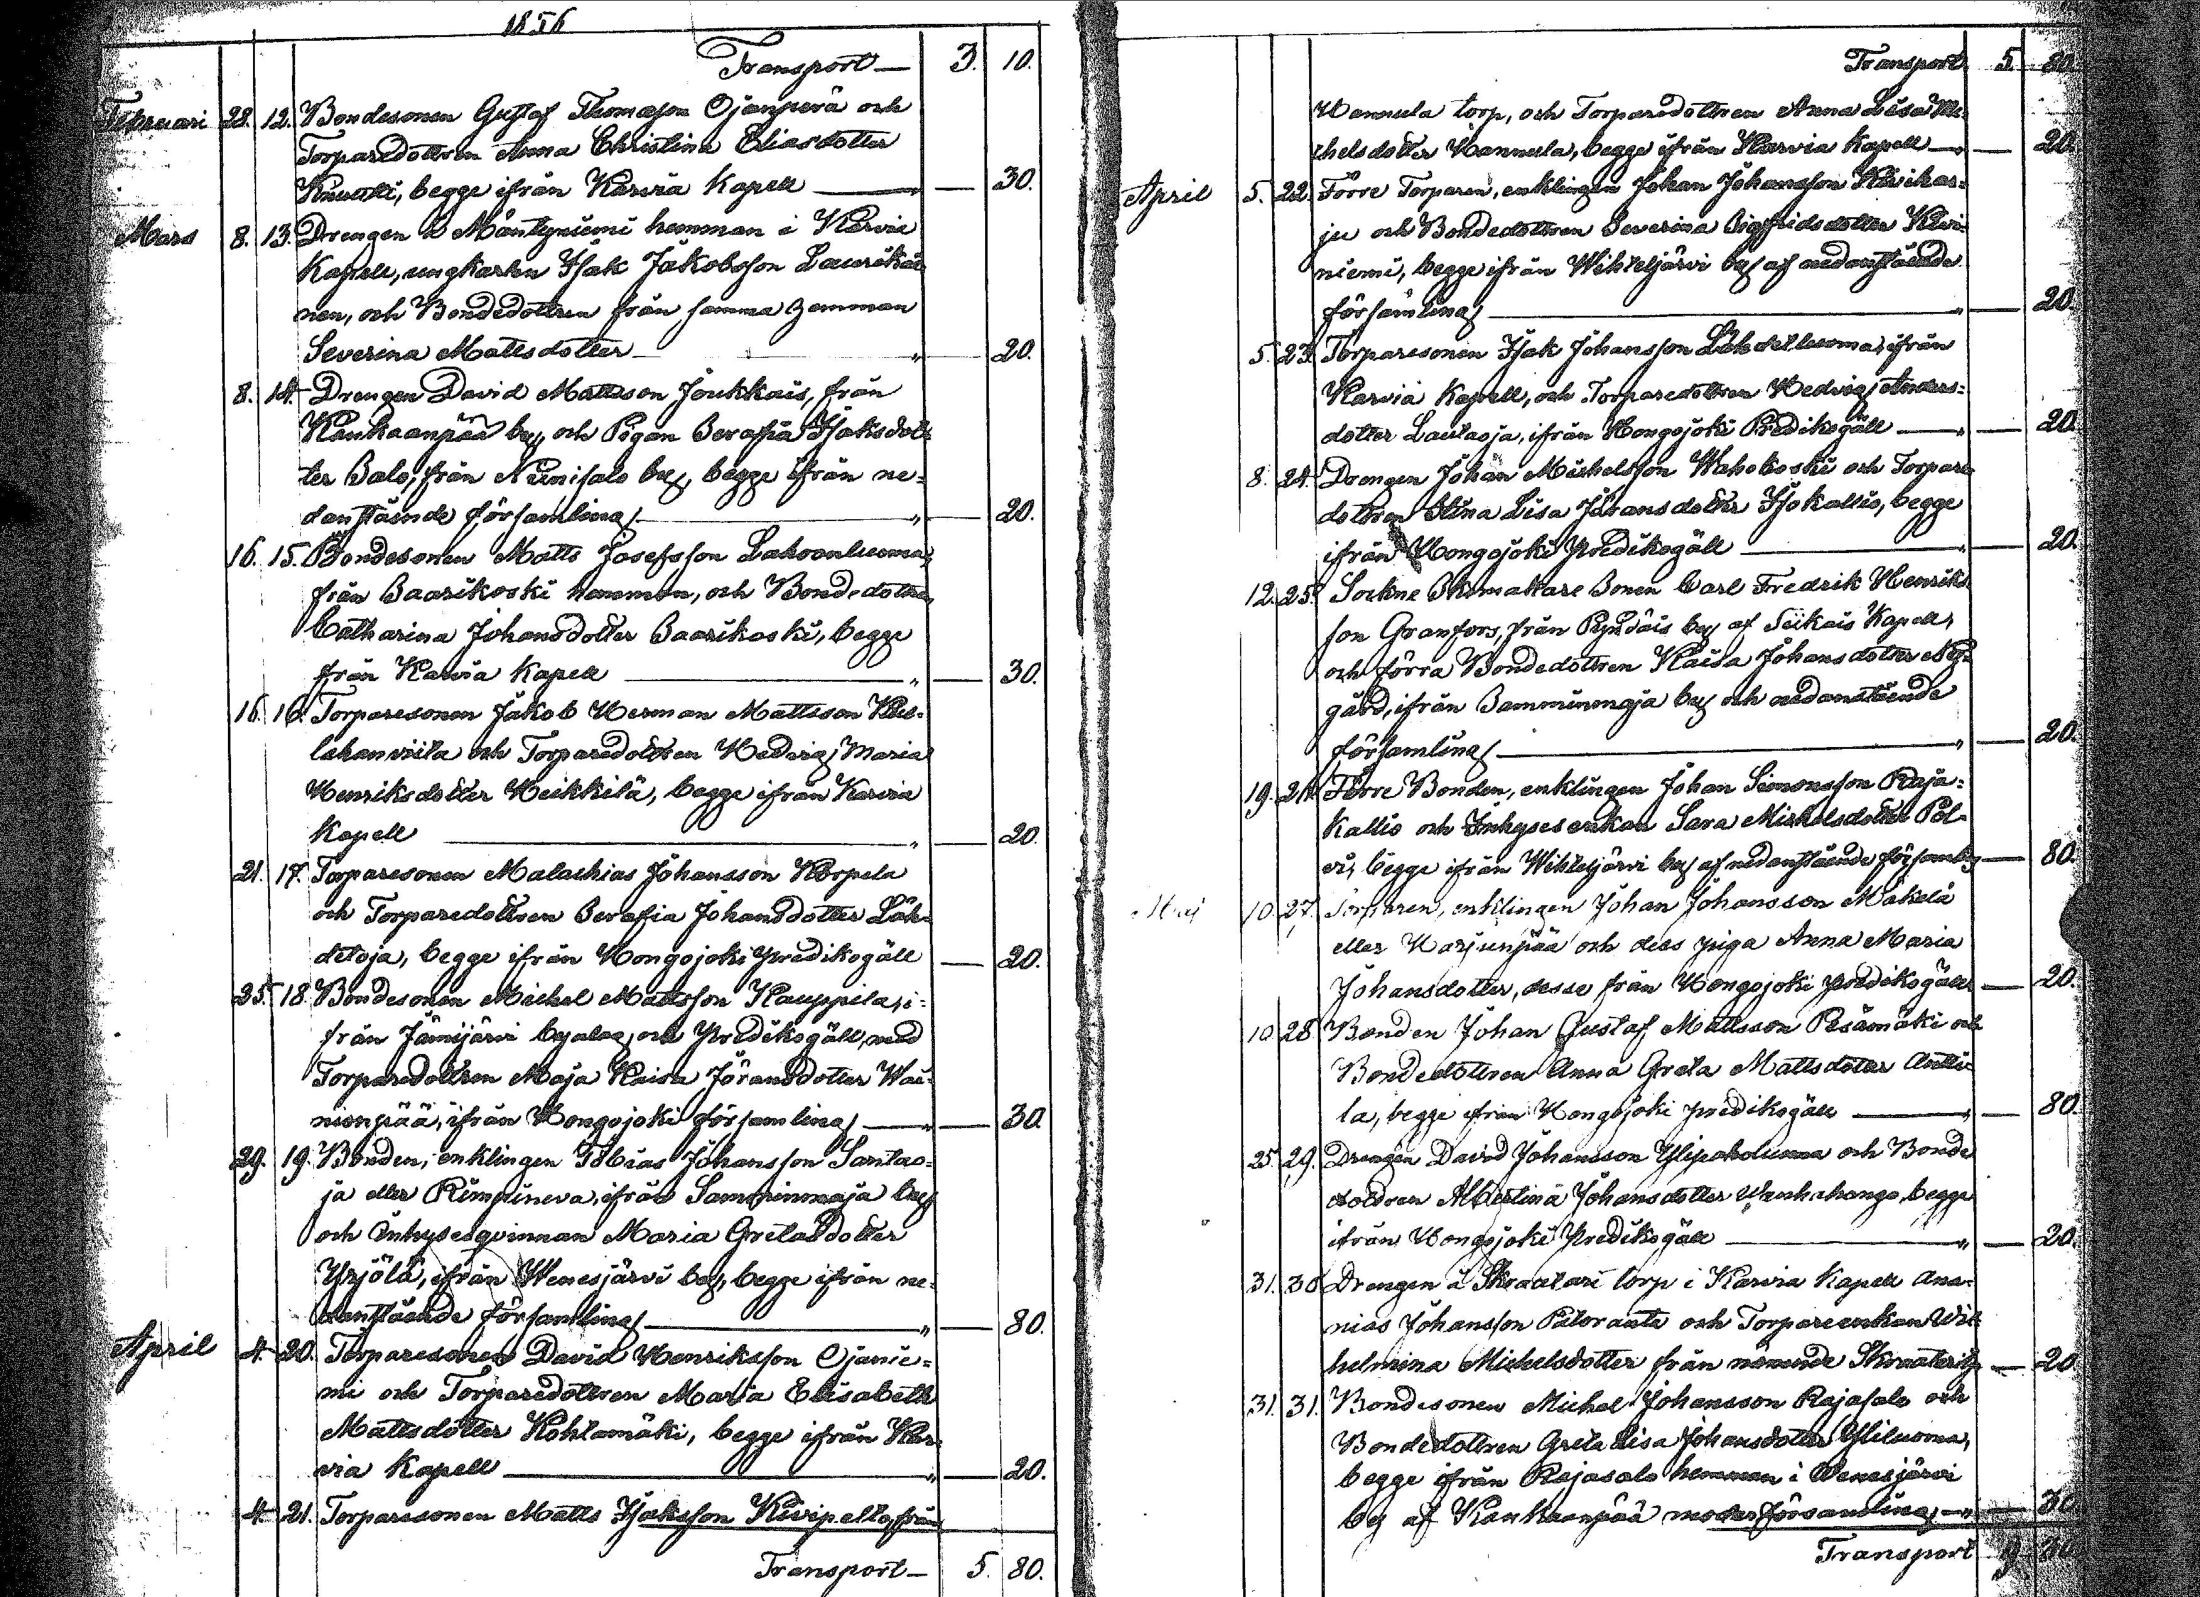 1856
Transport — 3. 10.
Februari 28. 12. Bondesonen Gustaf Thomasson Ojanperä och
Torparedottren Anna Christina Eliasdotter
begge ifrån Karvia Kapell — „ — 30.
Mars 8. 13. Drengen å Mäntyniemi hemman i Karvia
Kapell, ungkarlen Isak Jakobsson Laurikai-
nen, och Bondedottren från samma hemman
Severina Mattsdotter — „ — 20.
8. 14. Drengen David Mattsson Joukkais, från
Kankaanpää by, och Pigan Serafia Isaksdot-
ter Salo, från Niinisalo by, begge ifrån ne-
danstående församling — „ — 20.
16. 15. Bondesonen Matts Josefsson Lahoanluoma,
från Saarikoski hemman, och Bondedottren
Catharina Johansdotter Saarikoski, begge
från Karvia Kapell — „ — 30.
16. 16. Torparesonen Jakob Herman Mattsson Kel-
lahanviita och Torparedottren Hedvig Maria
Henriksdotter Heikkilä, begge ifrån Karvia
Kapell — „ — 20.
21. 17. Torparesonen Malachias Johansson Korpela
och Torparedottren Serafia Johansdotter Läh-
detoja, begge ifrån Hongojoki Predikogäll — 20.
25. 18. Bondesonen Michel Mattsson Kauppila, i-
från Jämijärvi byalag och Predikogäll, med
Torparedottren Maja Kaisa Jöransdotter Wai-
nionpää, ifrån Hongojoki församling — „ — 30.
29. 19. Bonden, enklingen Tobias Johansson Santao-
ja eller Rimpineva, ifrån Samminmaja by
och Inhysesqvinnan Maria Gretasdotter
Yrjölä, ifrån Wenesjärvi by, begge ifrån ne-
danstående församling — „ — 80.
April 4. 20. Torparesonen David Henriksson Ojanie-
mi och Torparedottren Maria Elisabeth
Mattsdotter Kohtamäki, begge ifrån Kar-
via Kapell — „ — 20.
4. 21. Torparesonen Matts Isaksson Kivipelto, från
Transport — 5. 80.
Transport 5. 80.
Hannula torp, och Torparedottren Anna Lisa Mi-
chelsdotter Hannula, begge ifrån Karvia Kapell — „ — 20.
April 5. 22. Förre Torparen, enklingen Johan Johansson Kivihar-
ju och Bondedottren Severina Sigfridsdotter Kivi-
niemi, begge ifrån Wihteljärvi by af nedanstående
församling — „ — 20.
5. 23. Torparesonen Isak Johansson Lähdetluoma, ifrån
Karvia Kapell, och Torparedottren Hedvig Anders-
dotter Lautaoja, ifrån Hongojoki Predikogäll — „ — 20.
8. 24. Drengen Johan Michelsson Wahokoski och Torpare
dottren Stina Lisa Jöransdotter Isokallio, begge
ifrån Hongojoki Predikogäll — „ — 20.
12. 25. Sockne Skomakare Sonen Carl Fredrik Henriks-
son Granfors, från by af Siikais Kapell,
och förra Bondedottren Kaisa Johansdotter Ny-
gård, ifrån Samminmaja by och nedanstående
församling — „ — 20.
19. 26. Förre Bonden, enklingen Johan Simonsson Raja-
kallio och Inhysesenkan Sara Michelsdotter Pol-
vi, begge ifrån Wihteljärvi by af nedanstående församling — 80.
Maj 10. 27. Torparen, enklingen Johan Johansson Mäkelä
eller Harjunpää och dess piga Anna Maria
Johansdotter, desse från Hongojoki Predikogäll — 20.
10. 28. Bonden Johan Gustaf Mattsson Pesämäki och
Bondedottren Anna Greta Mattsdotter Antti-
la, begge ifrån Hongojoki predikogäll — „ — 80.
25. 29. Drengen David Johansson Ylipaholuoma och Bonde
dottren Albertina Johansdotter Wanhahongo, begge
ifrån Hongojoki Predikogäll — „ — 20.
31. 30. Drengen å Skraatari torp i Karvia Kapell Ana-
nias Johansson Pitoranta och Torpareenkan Wil-
helmina Michelsdotter från nämnde Skraatari — 20.
31. 31. Bondesonen Michel Johansson Rajasalo och
Bondedottren Greta Lisa Johansdotter Yliluoma,
begge ifrån Rajasalo hemman i Wenesjärvi
by af Kankaanpää moderförsamling — „ — 30.
Transport 9. 30.